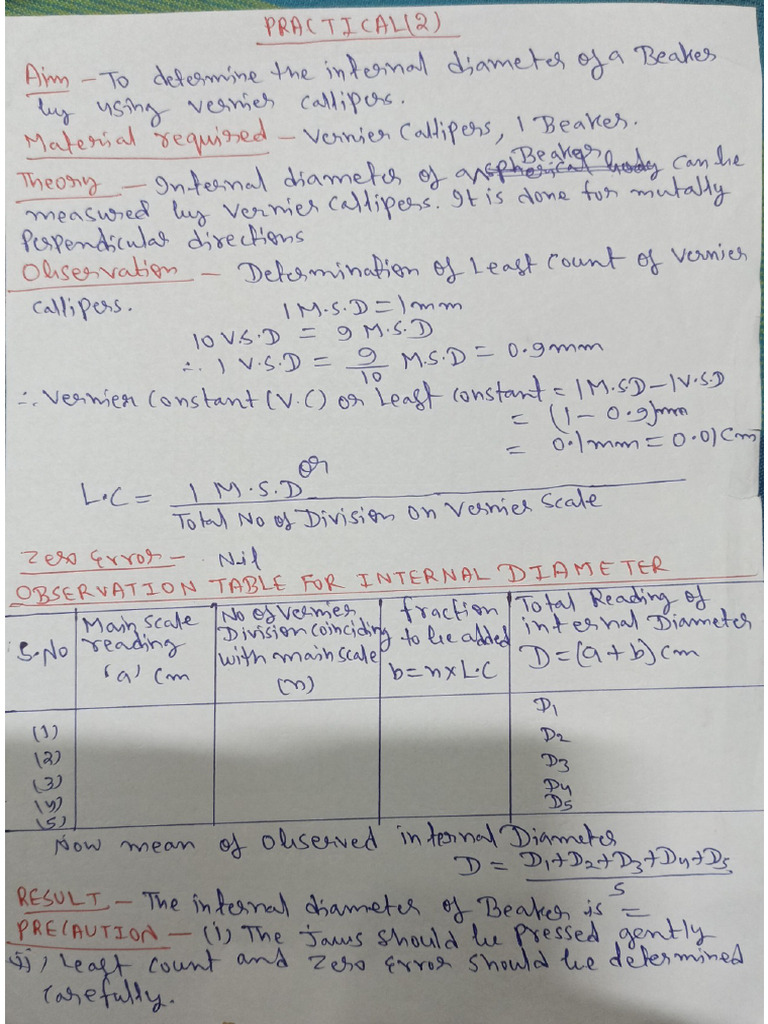 PRACTICAL(2)
Aim - To determine the internal diameter of a Beaker
by using vernier callipers.
Material required - Vernier Callipers, 1 Beaker.
Beaker
Theory - Internal diameter of a spherical body can be
measured by vernier callipers. It is done for mutally
Perpendicular directions
Observation - Determination of Least Count of Vernier
callipers.
1 M.S.D = 1mm
10 V.S.D = 9 M.S.D
∴ 1 V.S.D = 9/10 M.S.D = 0.9mm
∴ Vernier Constant (V.C) or Least constant = 1M.SD - 1V.S.D
= (1 - 0.9)mm
= 0.1mm = 0.01Cm
or
L.C = 1 M.S.D
Total No of Division on Vernier Scale
Zero Error - Nil
OBSERVATION TABLE FOR INTERNAL DIAMETER
S.No
Main scale
reading
'a' Cm
No of Vernier
Division Coinciding
with main scale
(n)
fraction
to be added
b = n x L.C
Total Reading of
internal Diameter
D = (a + b) Cm
(1) D1
(2) D2
(3) D3
(4) D4
(5) D5
Now mean of Observed internal Diameter
D = D1+D2+D3+D4+D5
5
RESULT - The internal diameter of Beaker is =
PRECAUTION - (i) The Jaws should be pressed gently
ii) Least Count and Zero Error should be determined
Carefully.